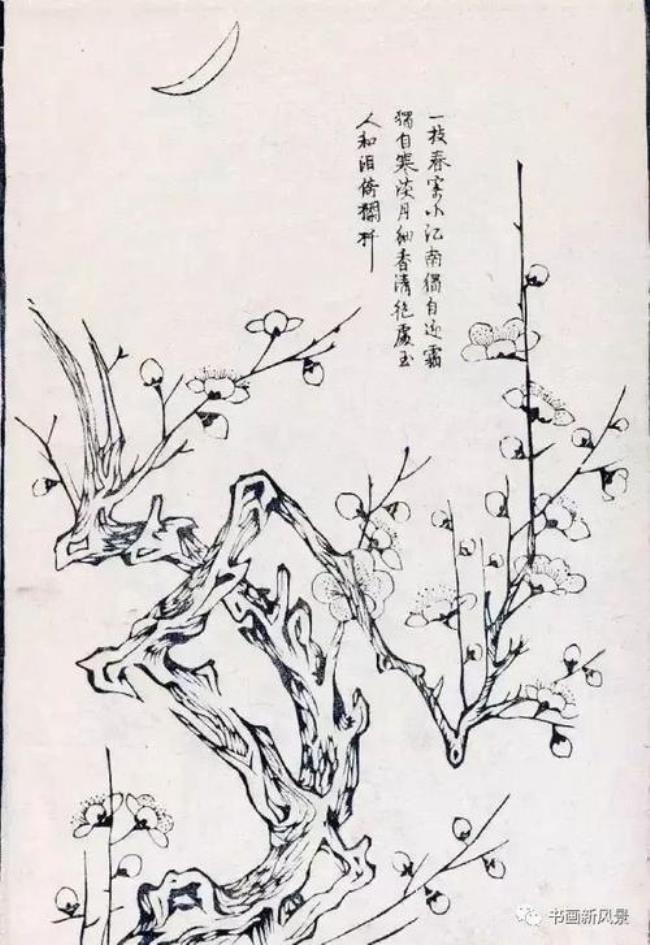 一枝春寄小江南獨自迎霜
獨自寒淡月細香清絕處玉
人和泪倚欄杆
书画新风景